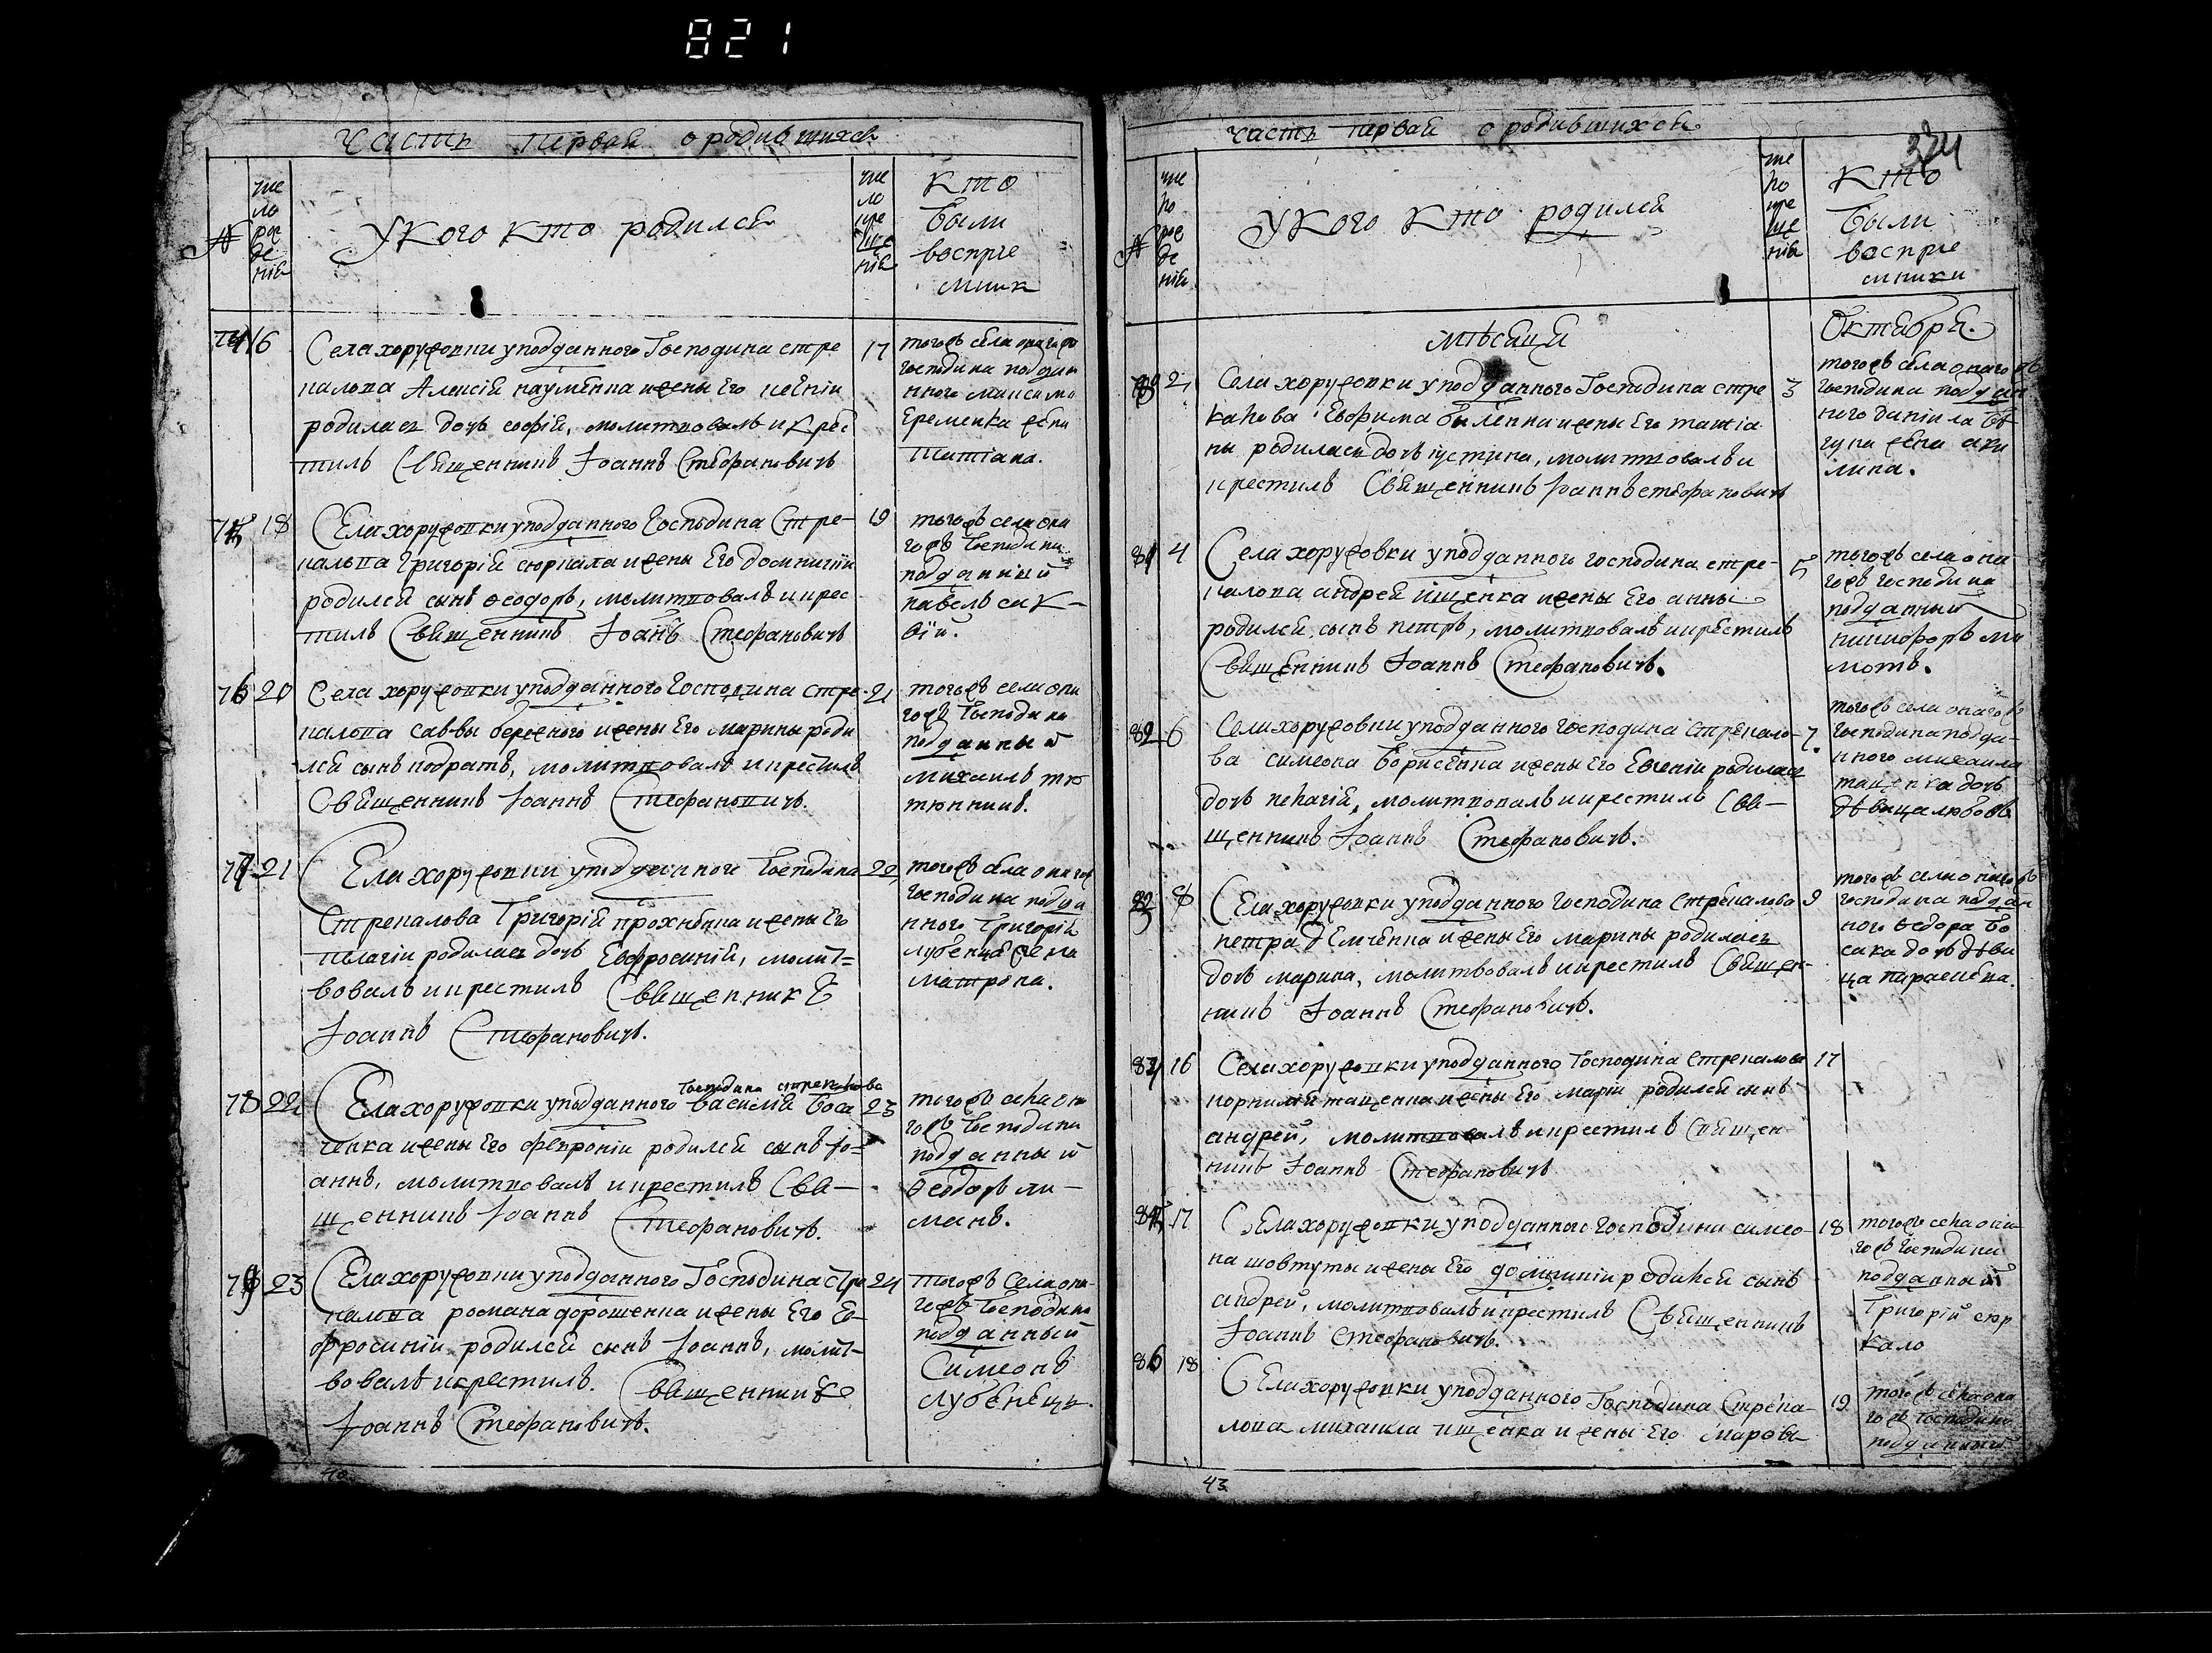 821
Часть первая о родившихся
№
чис
ло
рож
де
нія
У кого кто родился
чис
ло
кре
ще
нія
кто
были
воспріе
мник
74 16
Села хоружовки у подданного Господина стре
калова Алексія науменка и жены Его
родилась дочь софія, молитвовалъ и крес
тилъ Священникъ Іоаннъ Стефановичъ
17
тогожъ села оногожъ
господина поддан
ного максима
Еременка жена
Татіана.
75 18
Села хоружовки у подданного Господина Стре-
калова Григорія сюркала и жены Его домникіи
родился сынъ Ѳеодоръ, молитвовалъ и крес-
тилъ Священникъ Іоанъ Стефановичъ
19
тогожъ села оно
гожъ Господина
подданный
павелъ сак-
вій.
76 20
Села хоружовки у подданного Господина Стре-
калова саввы бережного и жены Его марины роди
лся сынъ кодратъ, молитвовалъ и крестилъ
Священникъ Іоаннъ Стефановичъ.
21
тогожъ села оно
гожъ Господина
подданный
михаилъ тю
тюнникъ.
77 21
Села хоружовки у подданного Господина
Стрекалова Григорія прохненка и жены Его
пелагіи родилась дочь Евфросинія, молит-
вовалъ и крестилъ Священникъ
Іоаннъ Стефановичъ.
22
тогожъ села оногожъ
господина подда
нного Григорія
лубенца жена
матрона.
78 22
Господина стрекалова
Села хоружовки у подданного василія Боса
ченка и жены Его февроніи родился сынъ Іо-
аннъ, молитвовалъ и крестилъ Свя-
щенникъ Іоаннъ Стефановичъ.
23
тогожъ села оно
гожъ Господина
подданный
Ѳеодоръ ли-
манъ.
79 23
Села хоружовки у подданного Господина Стре
калова романа дорошенка и жены Его Ев-
фросиніи родился сынъ Іоаннъ, молит-
вовалъ и крестилъ. Священникъ
Іоаннъ Стефановичъ.
24
тогожъ Села оно-
гожъ Господина
подданный
Симеонъ
лубенецъ.
Часть первая о родившихся
334
№
чис
ло
рож
де
нія
У кого кто родился
чис
ло
кре
ще
нія
кто
были
воспріе
мники
мѣсяцъ
Октябрь.
80 2
Села хоружовки у подданного Господина стре
калова Евфима быленка и жены Его татіа
ны родилась дочь іустина, молитвовалъ и
крестилъ Священникъ Іоаннъ стефановичъ
3
тогожъ села оногожъ
господина поддан
ного даніила бѣ
гуна жена аки
лина.
81 4
Села хоружовки у подданного господина стре-
калова андрея ищенка и жены Его анны
родился сынъ петръ, молитвовалъ и крестилъ
Священникъ Іоаннъ Стефановичъ.
5
тогожъ села оно
гожъ господина
подданный
никифоръ ма
мотъ.
82 6
Села хоружовки у подданного господина Стрекало-
ва симеона Борисенка и жены Его Евгеніи родилась
дочь пелагія, молитвовалъ и крестилъ Свя-
щенникъ Іоаннъ Стефановичъ.
7.
тогожъ села оногожъ
Господина подда-
нного михаила
тащенка дочь
дѣвица любовь
83 8
Села хоружовки у подданного Господина Стрекалова
петра демченка и жены Его марины родилась
дочь марина, молитвовалъ и крестилъ Священ-
никъ Іоаннъ Стефановичъ.
9
тогожъ села оногожъ
господина поддан
ного Ѳедора Бо
сака дочь дѣви
ца параскева.
84 16
Села хоружовки у подданного Господина Стрекалова
корнилія тащенка и жены Его маріи родился сынъ
андрей, молитвовалъ и крестилъ Священ-
никъ Іоаннъ Стефановичъ
17
85 17
Села хоружовки у подданного Господина симео-
на шовтуты и жены Его домникіи родился сынъ
андрей, молитвовалъ и крестилъ Священникъ
Іоаннъ Стефановичъ.
18
тогожъ села оно
гожъ Господина
подданный
Григорій сюр
кало
86 18
Села хоружовки у подданного Господина Стрека-
лова михаила ищенка и жены Его марѳы
19
тогожъ села оно
гожъ Господина
подданный
43